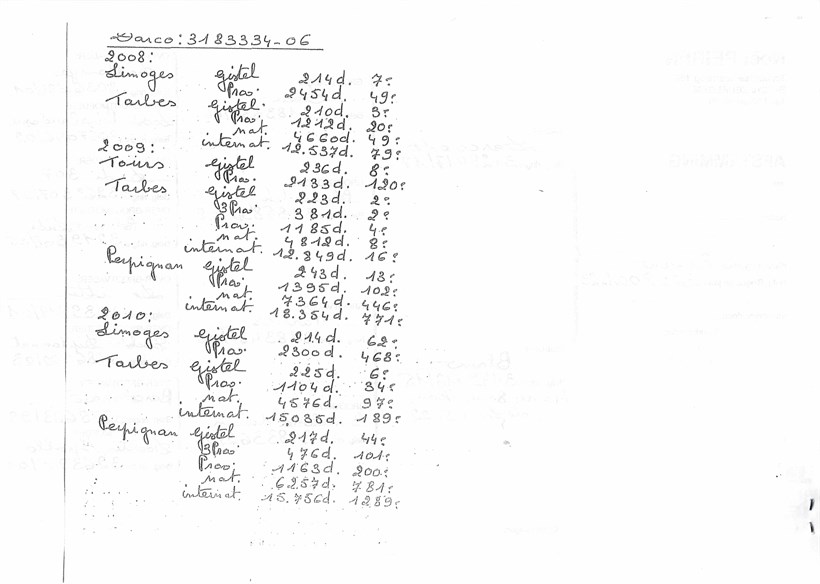 Darco: 3183334-06
2008:
Limoges gistel 214d. 7e
Prov. 2454d. 49e
Tarbes gistel 210d. 3e
Prov. 1212d. 20e
nat. 4660d. 49e
internat. 12.537d. 79e
2009:
Tours gistel 236d. 8e
Prov. 2133d. 120e
Tarbes gistel 223d. 2e
3Prov. 381d. 2e
Prov. 1185d. 4e
nat. 4812d. 8e
internat. 12.849d. 16e
Perpignan gistel 243d. 13e
Prov. 1395d. 102e
nat. 7364d. 446e
internat. 18.354d. 771e
2010:
Limoges gistel 214d. 62e
Prov. 2300d. 468e
Tarbes gistel 225d. 6e
Prov. 1104d. 34e
nat. 4576d. 97e
internat. 15.035d. 189e
Perpignan gistel 217d. 44e
3Prov 476d. 101e
Prov. 1163d. 200e
nat. 6257d. 781e
internat. 15.756d. 1289e